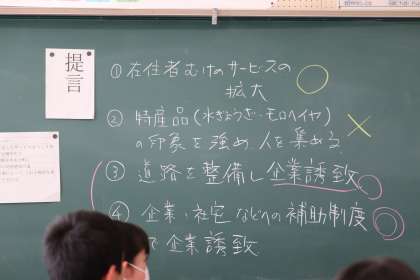 提言
①在住者むけのサービスの
拡大
②特産品(水ぎょうざ・モロヘイヤ)
の印象を強め、人を集める
③道路を整備し企業誘致
④企業・社宅などへの補助制度
で企業誘致